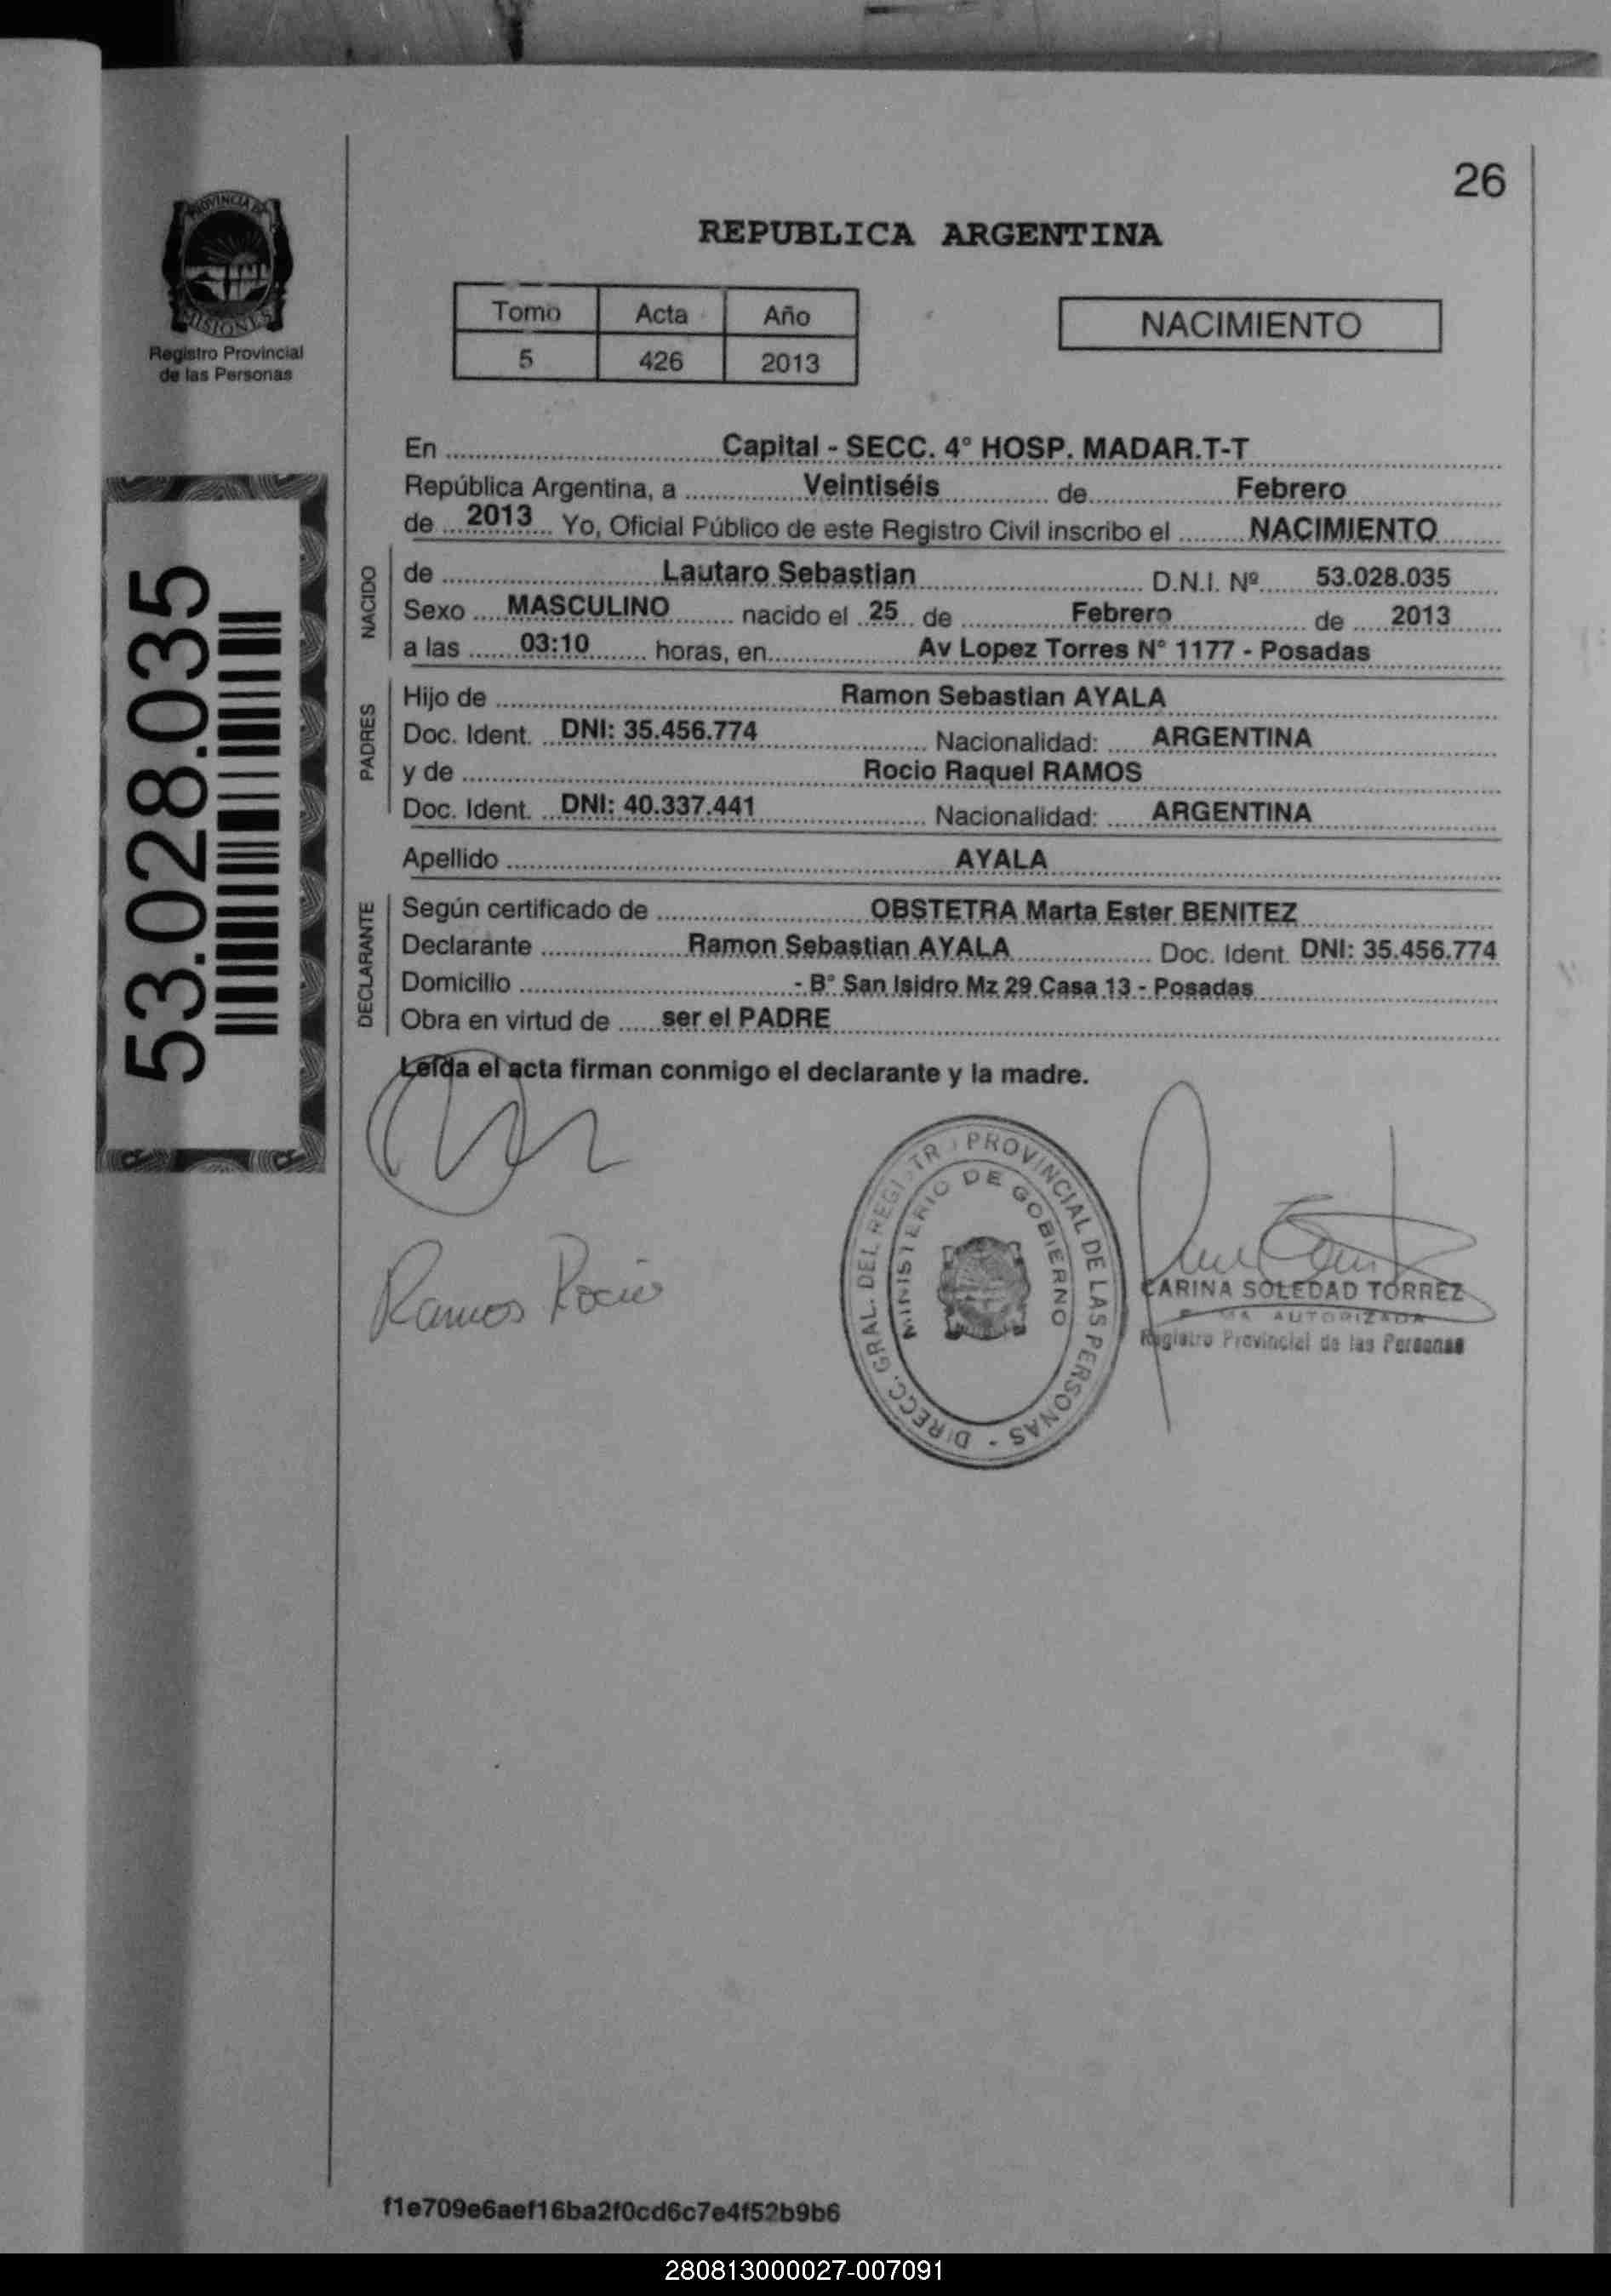 26
PROVINCIA DE
MISIONES
Registro Provincial
de las Personas
REPUBLICA ARGENTINA
Tomo Acta Año
5 426 2013
NACIMIENTO
En Capital - SECC. 4° HOSP. MADAR.T-T
República Argentina, a Veintiséis de Febrero
de 2013 Yo, Oficial Público de este Registro Civil inscribo el NACIMIENTO
NACIDO
de Lautaro Sebastian D.N.I. Nº 53.028.035
Sexo MASCULINO nacido el 25 de Febrero de 2013
a las 03:10 horas, en Av Lopez Torres N° 1177 - Posadas
PADRES
Hijo de Ramon Sebastian AYALA
Doc. Ident. DNI: 35.456.774 Nacionalidad: ARGENTINA
y de Rocio Raquel RAMOS
Doc. Ident. DNI: 40.337.441 Nacionalidad: ARGENTINA
Apellido AYALA
DECLARANTE
Según certificado de OBSTETRA Marta Ester BENITEZ
Declarante Ramon Sebastian AYALA Doc. Ident. DNI: 35.456.774
Domicilio - B° San Isidro Mz 29 Casa 13 - Posadas
Obra en virtud de ser el PADRE
Leída el acta firman conmigo el declarante y la madre.
53.028.035
Ramos Rocio
DIRECC. GRAL. DEL REGISTRO PROVINCIAL DE LAS PERSONAS -
MINISTERIO DE GOBIERNO
CARINA SOLEDAD TORREZ
AUTORIZADA
Registro Provincial de las Personas
f1e709e6aef16ba2f0cd6c7e4f52b9b6
280813000027-007091